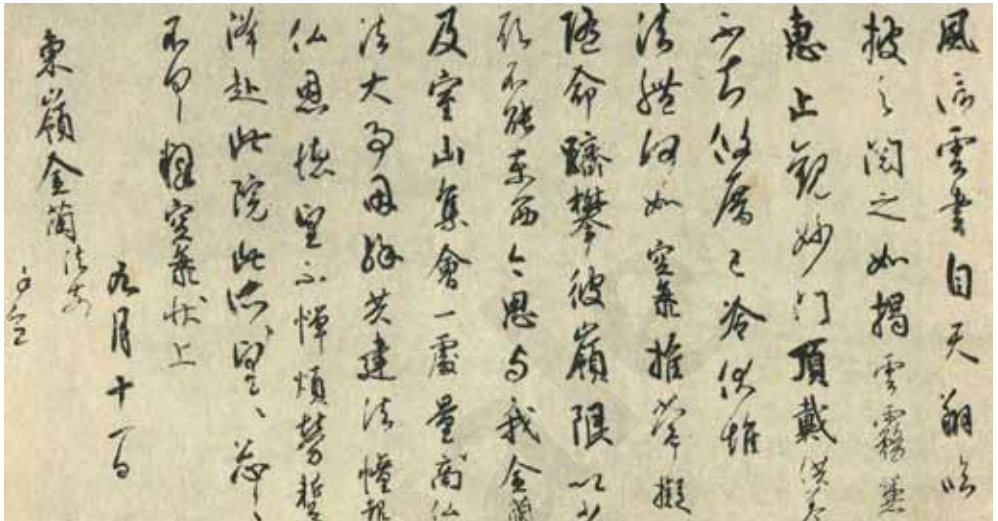 風信雲書自天翔臨
披之閱之如揭雲霧兼
惠止觀妙門頂戴供養
不知攸厝已冷伏惟
法體何如空海推常擬
隨命躋攀彼嶺限以少
願不能東西今思与我金蘭
及室山集會一處量商仏
法大事因緣共建法幢報
仏恩德望不憚煩勞蹔
降赴此院此所望〻忩〻
不具釋空海狀上
九月十一日
東嶺金蘭法前
謹空